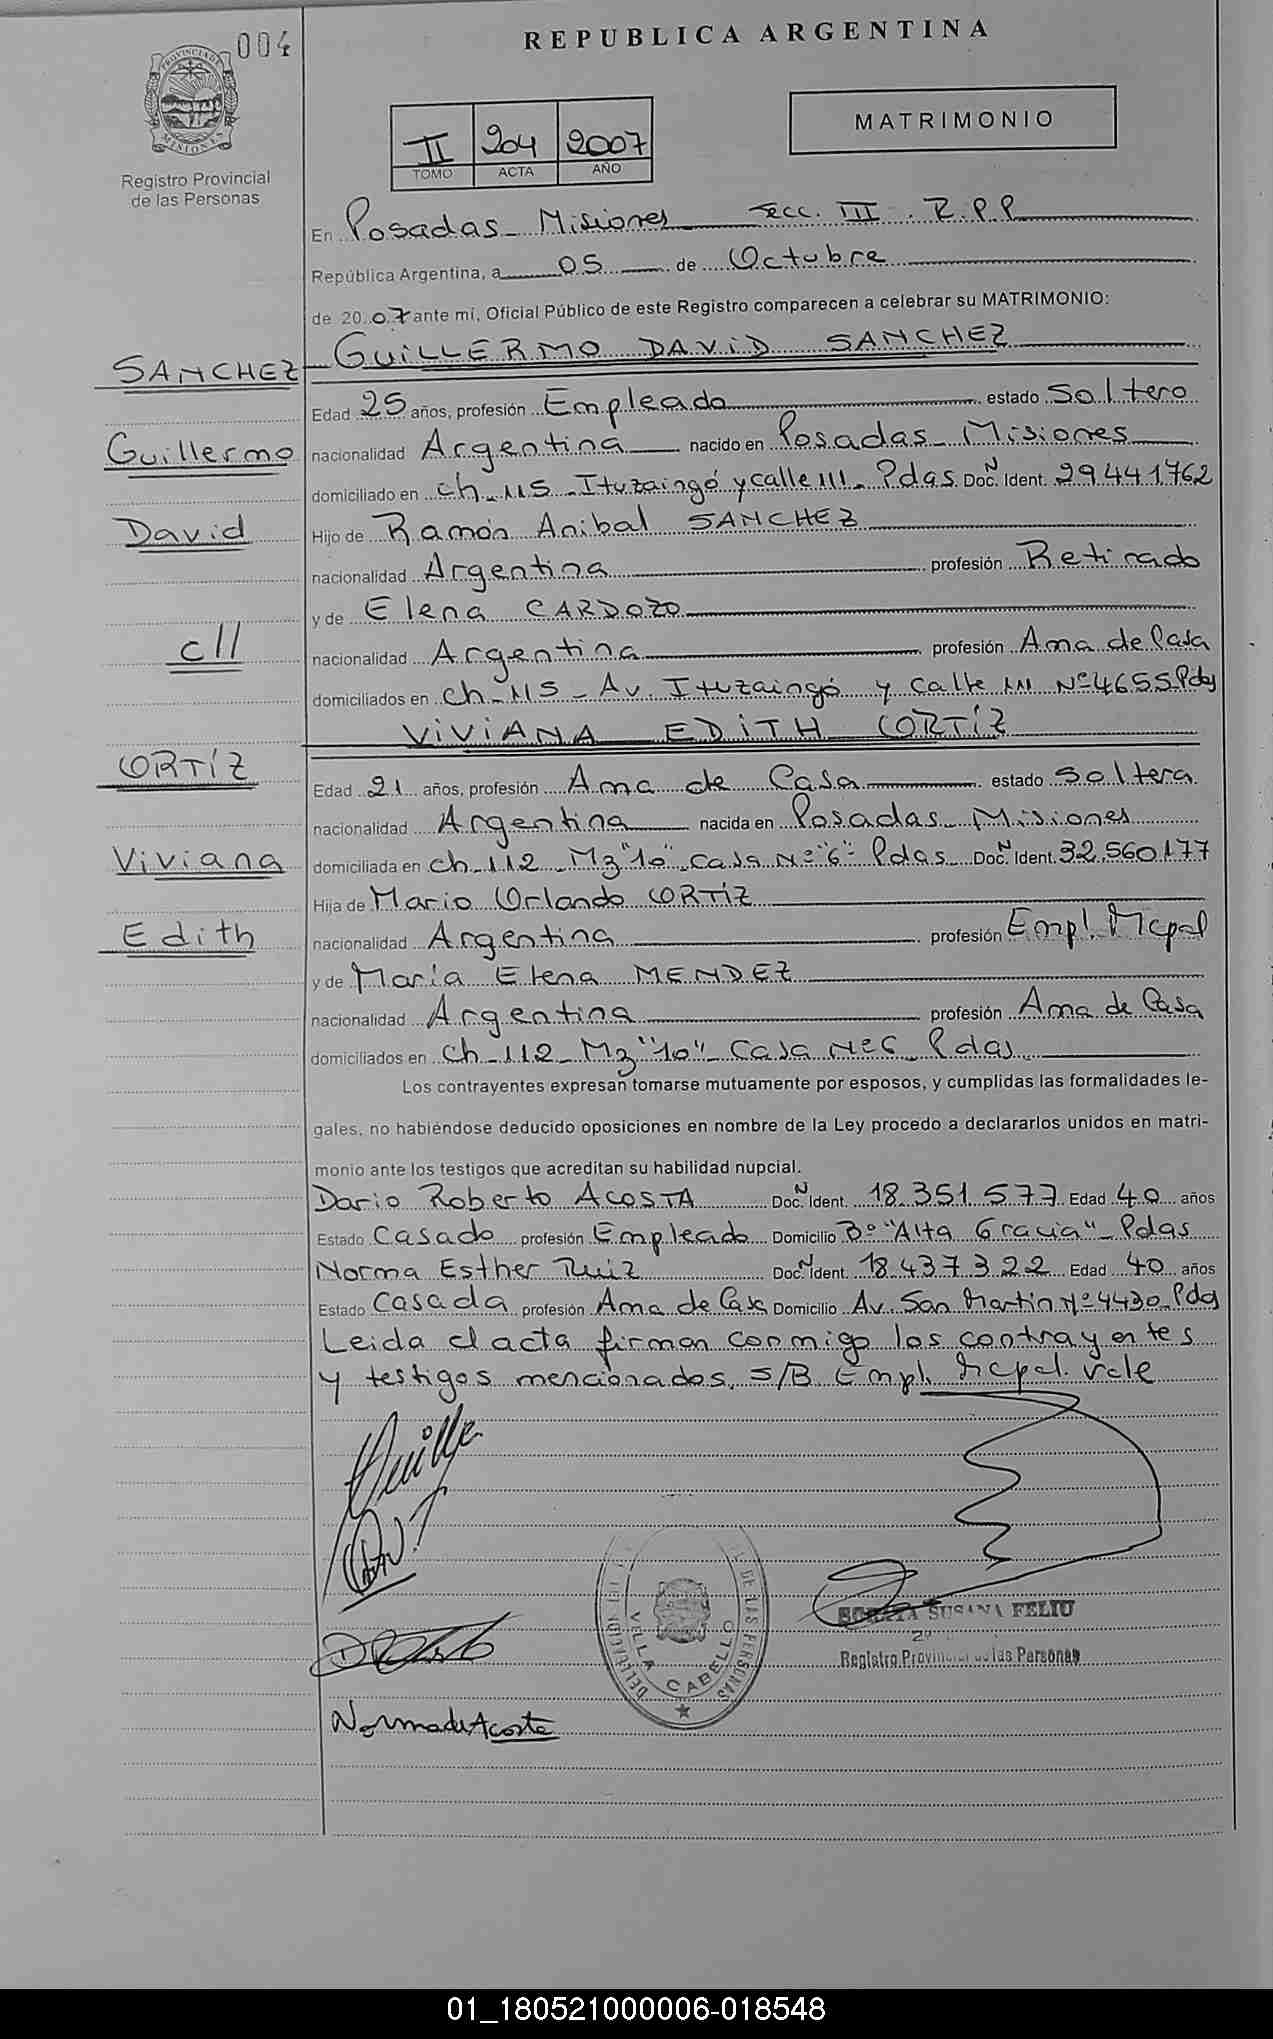 004
REPUBLICA ARGENTINA
PROVINCIA DE MISIONES
Registro Provincial
de las Personas
II 204 2007
TOMO ACTA AÑO
MATRIMONIO
En Posadas - Misiones Secc. III. R.P.P
República Argentina, a 05 de Octubre
de 20 07 ante mí, Oficial Público de este Registro comparecen a celebrar su MATRIMONIO:
SANCHEZ GUILLERMO DAVID SANCHEZ
Edad 25 años, profesión Empleado estado Soltero
Guillermo nacionalidad Argentina nacido en Posadas - Misiones
domiciliado en ch. 115 - Ituzaingó y calle 111 - Pdas. Doc. N Ident. 29.441.762
David Hijo de Ramón Anibal SANCHEZ
nacionalidad Argentina profesión Retirado
y de Elena CARDOZO
c/l nacionalidad Argentina profesión Ama de Casa
domiciliados en ch. 115 - Av. Ituzaingó y Calle 111 Nº 4655 Pdas
VIVIANA EDITH ORTÍZ
ORTÍZ Edad 21 años, profesión Ama de Casa estado Soltera
nacionalidad Argentina nacida en Posadas - Misiones
Viviana domiciliada en ch. 112 Mz "10" Casa Nº "6" Pdas Doc. N Ident. 32.560.177
Hija de Mario Orlando ORTÍZ
Edith nacionalidad Argentina profesión Empl. Mcpal
y de María Elena MENDEZ
nacionalidad Argentina profesión Ama de Casa
domiciliados en ch. 112 - Mz "10" - Casa Nº 6 Pdas
Los contrayentes expresan tomarse mutuamente por esposos, y cumplidas las formalidades le-
gales, no habiéndose deducido oposiciones en nombre de la Ley procedo a declararlos unidos en matri-
monio ante los testigos que acreditan su habilidad nupcial.
Dario Roberto ACOSTA Doc. N Ident. 18.351.577 Edad 40 años
Estado Casado profesión Empleado Domicilio Bº "Alta Gracia" - Pdas
Norma Esther Ruiz Doc. N Ident. 18.437.322 Edad 40 años
Estado Casada profesión Ama de Casa Domicilio Av. San Martín Nº 4430 Pdas
Leida el acta firman conmigo los contrayentes
y testigos mencionados. S/B Empl. Mcpal. Vale
Guille
DE LAS PERSONAS
VILLA CABELLO
SUSANA FELIU
Registro Provincial de las Personas
Norma de Acosta
01_180521000006-018548